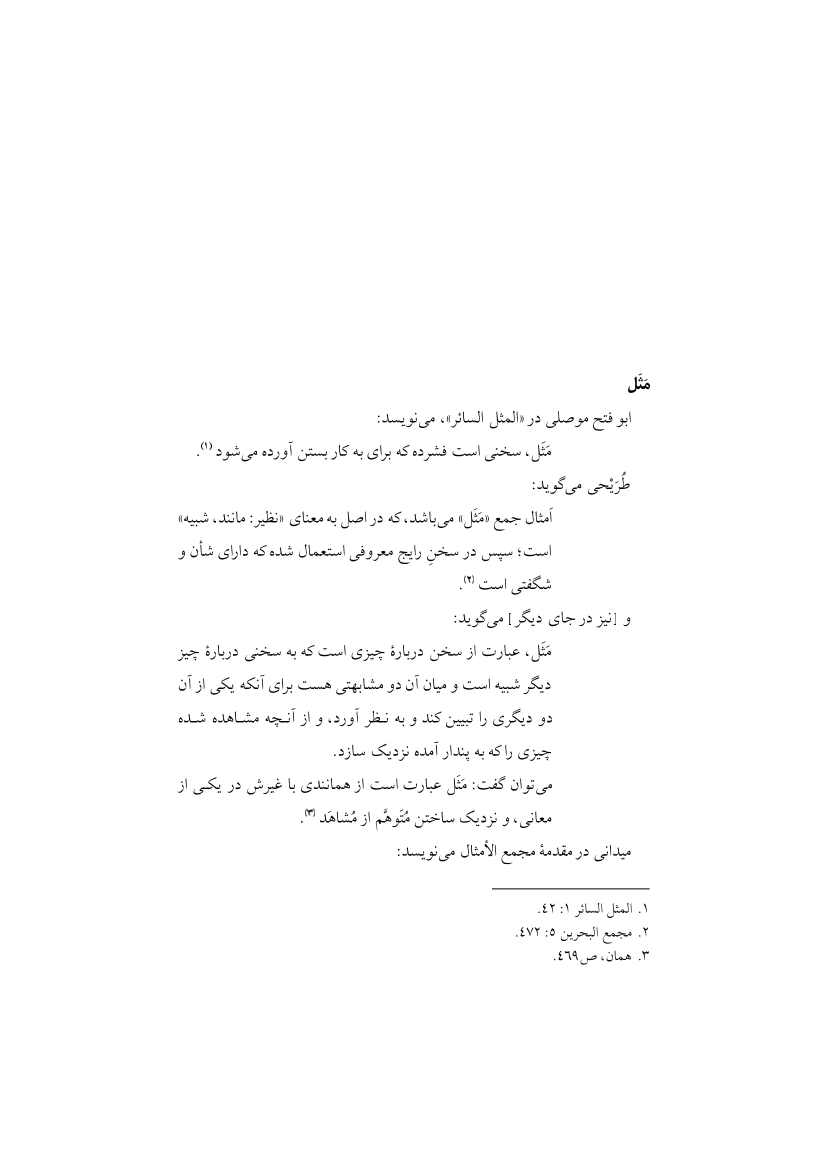 مَثَل
ابو فتح موصلی در «المثل السائر»، می‌نویسد:
مَثَل، سخنی است فشرده که برای به کار بستن آورده می‌شود (۱).
طُرَیْحی می‌گوید:
اَمثال جمع «مَثَل» می‌باشد، که در اصل به معنای «نظیر: مانند، شبیه»
است؛ سپس در سخنِ رایج معروفی استعمال شده که دارای شأن و
شگفتی است (۲).
و [نیز در جای دیگر] می‌گوید:
مَثَل، عبارت از سخن دربارهٔ چیزی است که به سخنی دربارهٔ چیز
دیگر شبیه است و میان آن دو مشابهتی هست برای آنکه یکی از آن
دو دیگری را تبیین کند و به نظر آورد، و از آنچه مشاهده شده
چیزی را که به پندار آمده نزدیک سازد.
می‌توان گفت: مَثَل عبارت است از همانندی با غیرش در یکی از
معانی، و نزدیک ساختن مُتَوهَّم از مُشاهَد (۳).
میدانی در مقدمهٔ مجمع الأمثال می‌نویسد:
۱. المثل السائر ۱: ٤۲.
۲. مجمع البحرین ٥: ٤۷۲.
۳. همان، ص٤٦۹.